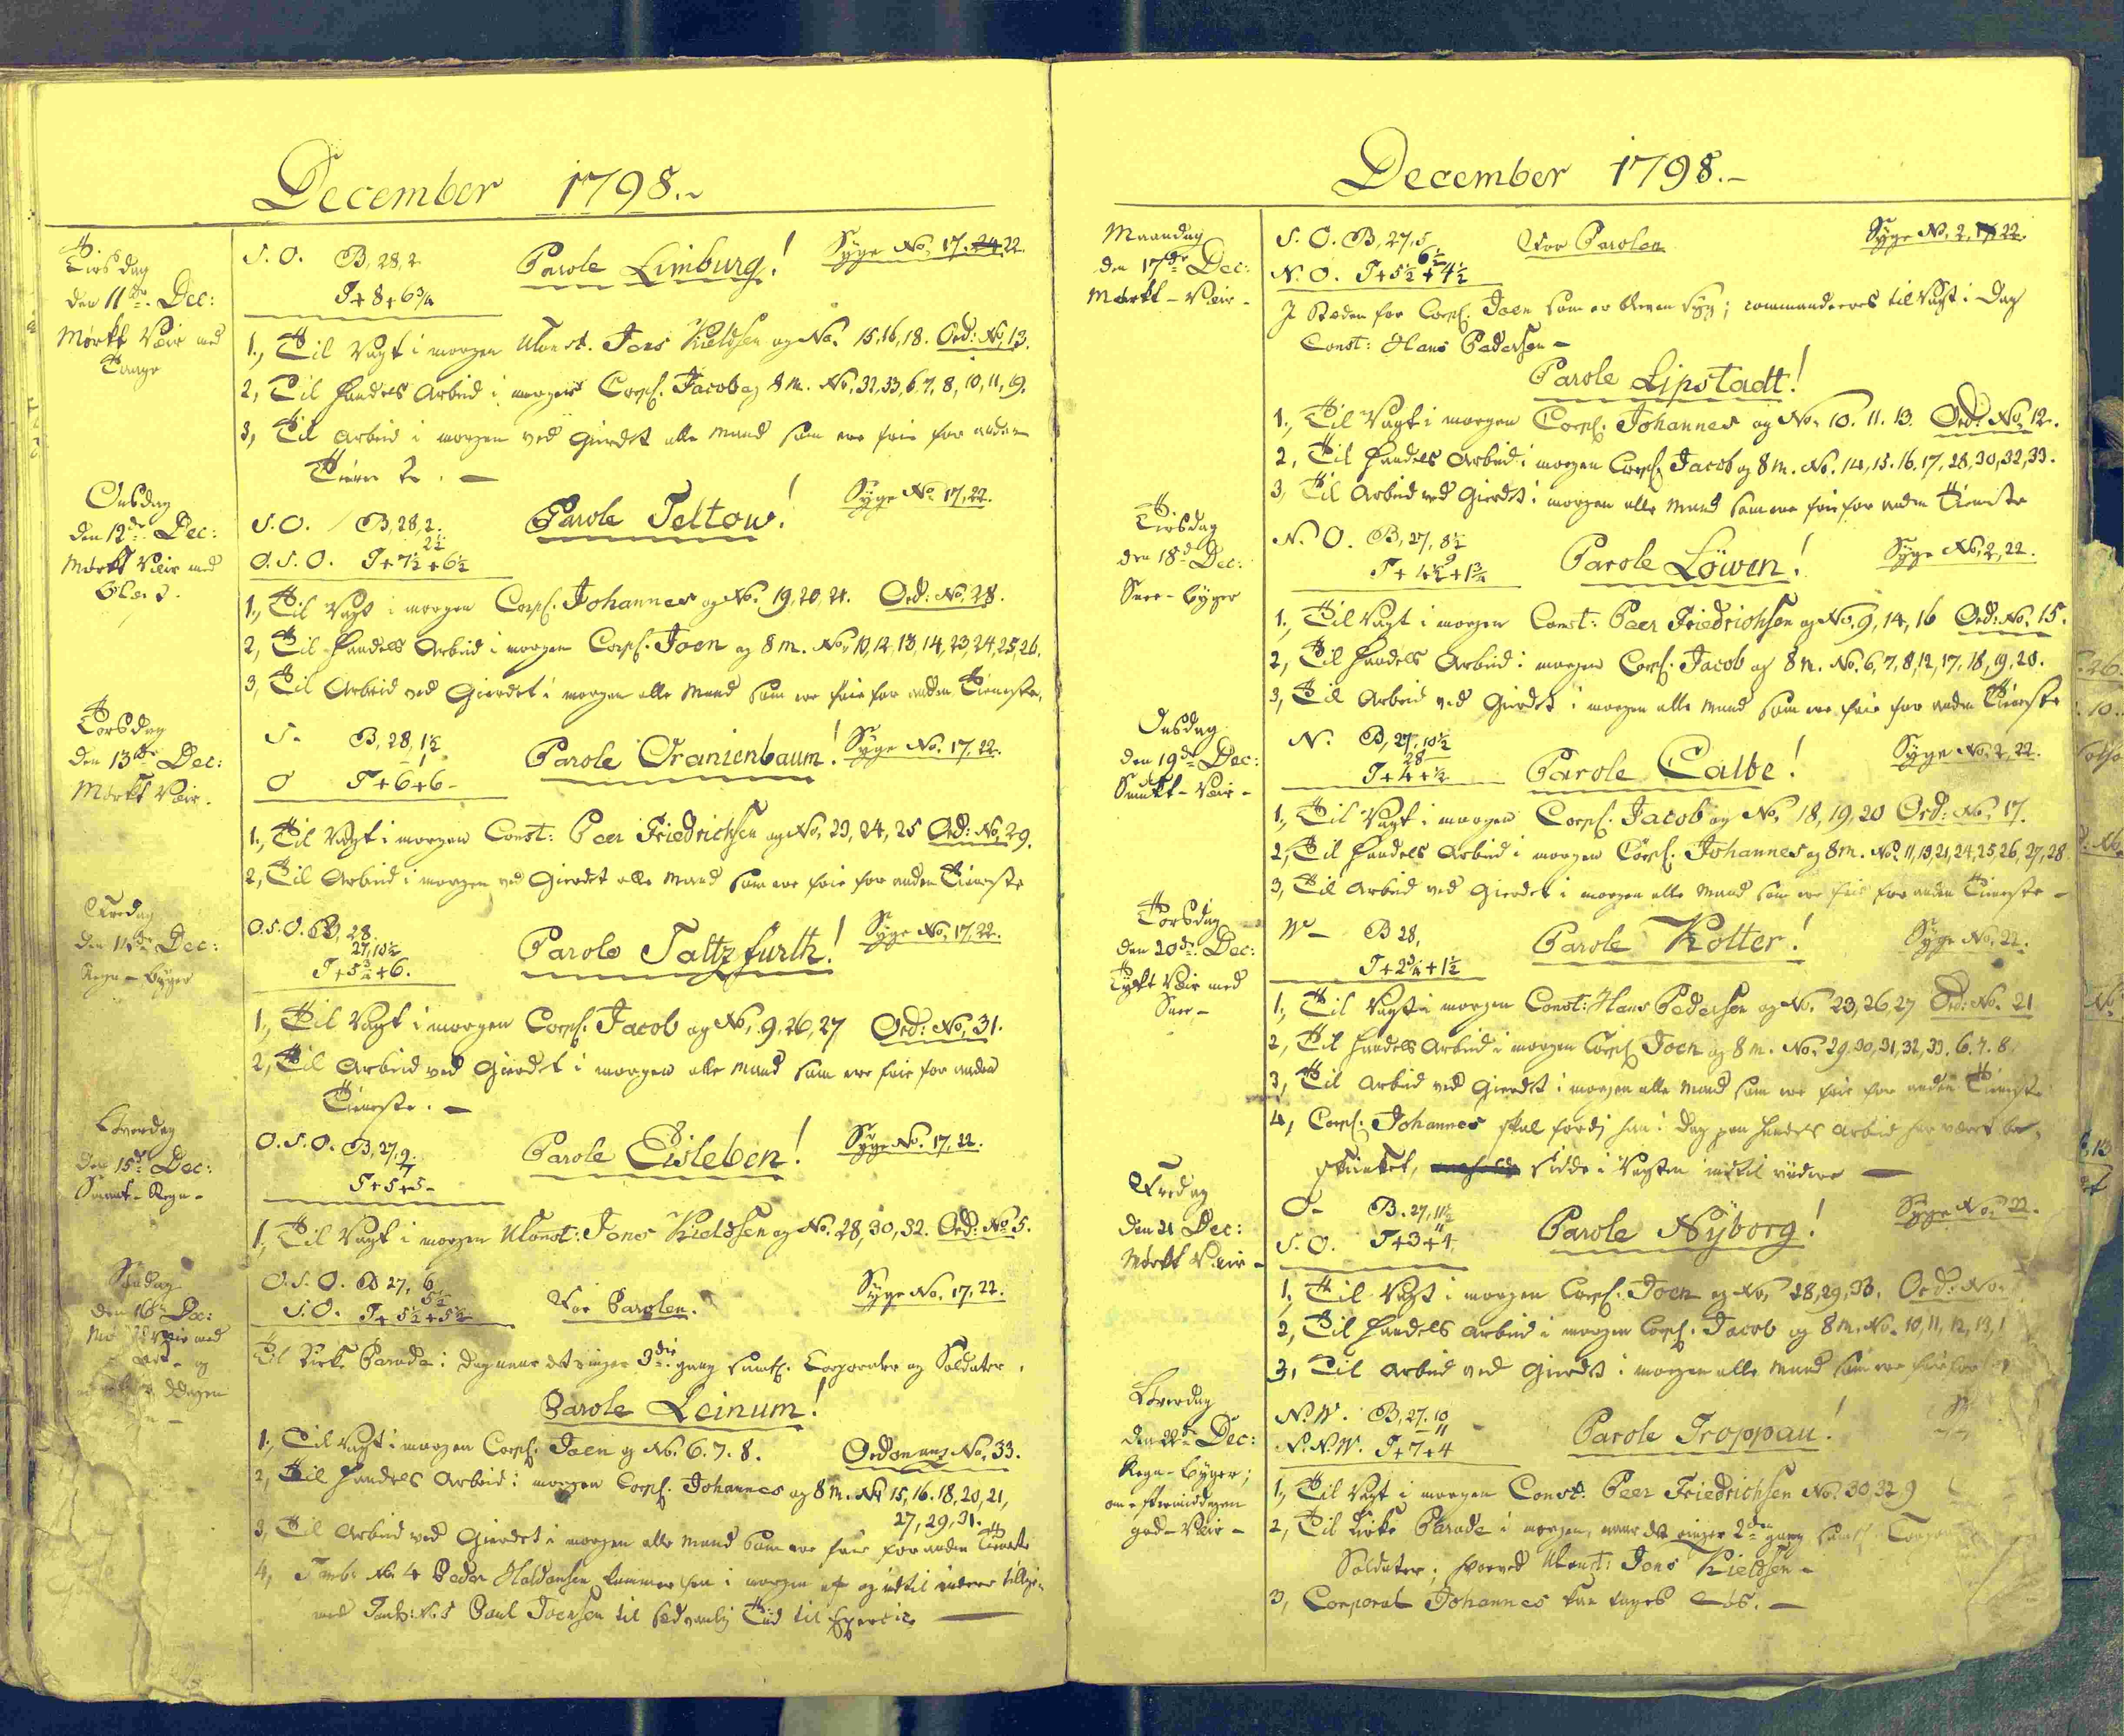 December 1798.
Tirsdag
den 11te Dec:
Mørkt Veir med
Taage
S. O. B, 28, 2
T+8+6¾
Parole Limburg!
Syge No. 17. 22.
1, Til Vagt i morgen UConst. Jens Kieldsen og No. 15, 16, 18. Ord: No. 13.
2, Til Handels Arbeid i morgen Corpl. Jacob og 8 m. No. 32, 33, 6, 7, 8, 10, 11, 19.
3, Til Arbeid i morgen ved Gierdet alle Mand som ere frie for anden
Onsdag
den 12te Dec:
Mørkt Veir med
Blæst.
S. O. B, 28, 2.
2½
O. S. O. T+7½+6½
Parole Teltow!
Syge No. 17, 22.
1, Til Vagt i morgen Corpl. Johannes og No. 19, 20, 21. Ord: No. 28.
2, Til Handels Arbeid i morgen Corpl. Joen og 8 m. No. 10, 12, 13, 14, 23, 24, 25, 26.
3, Til Arbeid ved Gierdet i morgen alle Mand som ere frie for anden Tieneste.
Torsdag
den 13de Dec:
Mørkt Veir.
S. B, 28, 1½
1
O T+6+6
Parole Oranienbaum!
Syge No. 17, 22.
1, Til Vagt i morgen Const: Peer Friedrichsen og No. 23, 24, 25 Ord: No. 29.
2, Til Arbeid i morgen ved Gierdet alle Mand som ere frie for anden Tieneste
Fredag
den 14de Dec:
Regn-Byger
O. S. O. B, 28.
27, 10½
T+5¾+6.
Parole Saltzfurth!
Syge No. 17, 22.
1, Til Vagt i morgen Corpl. Jacob og No. 9, 26, 27 Ord: No. 31.
2, Til Arbeid ved Gierdet i morgen alle Mand som ere frie for anden
Tieneste.
Løverdag
den 15de Dec:
Smaat-Regn
O. S. O. B, 27, 9.
7
T+5+5
Parole Eisleben!
Syge No. 17, 22.
1, Til Vagt i morgen UConst: Jens Kieldsen og No. 28, 30, 32. Ord: No. 5.
Søndag
den 16de Dec:
O. S. O. B 27, 6
5½
S. O. T+5½+5½
For Parolen.
Syge No. 17, 22.
Til Kirke Parade i Dag naar det ringer 3die gang samtl. Corporaler og Soldater.
Parole Leinum!
1, Til Vagt i morgen Corpl. Joen og No. 6. 7. 8. Ordonnanz No. 33.
2, Til Handels Arbeid i morgen Corpl. Johannes og 8 m. No. 15, 16, 18, 20, 21,
27, 29, 31.
3, Til Arbeid ved Gierdet i morgen alle Mand som ere frie for anden Tieneste
4, Tamb: No. 4 Peder Haldansen kommer i morgen af og indtil videre tillige
med Tamb: No. 5 Paul Joensen til sædvanlig Tiid til Exercice
December 1798.
Maandag
den 17de Dec:
Mørkt-Veir-
S. O. B, 27, 5
6½
N. O. T+5½+4½
For Parolen
Syge No. 2, 22.
I Steden for Corpl. Joen som er bleven Syg; commanderes til Vagt i Dag
Const: Hans Pedersen
Parole Lipstadt!
1, Til Vagt i morgen Corpl. Johannes og No. 10. 11. 13. Ord: No. 12.
2, Til Handels Arbeid i morgen Corpl. Jacob og 8 m. No. 14, 15. 16. 17, 28, 30, 32, 33.
3, Til Arbeid ved Gierdet i morgen alle Mand som ere frie for anden Tieneste
Tirsdag
den 18de Dec:
Snee-Byger
N. O. B, 27, 8½
9
T+4½+1¾
Parole Löwen!
Syge No. 2, 22.
1, Til Vagt i morgen Const: Peer Friedrichsen og No. 9, 14, 16 Ord: No. 15.
2, Til Handels Arbeid i morgen Corpl. Jacob og 8 m. No. 6, 7, 8, 12, 17, 18, 19, 20.
3, Til Arbeid ved Gierdet i morgen alle Mand som ere frie for anden Tieneste
Onsdag
den 19de Dec:
Smukt-Veir-
N. B, 27, 10½
28
T+4+½
Parole Calbe!
Syge No. 2, 22.
1, Til Vagt i morgen Corpl. Jacob og No. 18, 19, 20 Ord: No. 17.
2, Til Handels Arbeid i morgen Corpl. Johannes og 8 m. No. 11, 13, 21, 24, 25, 26, 27, 28
3, Til Arbeid ved Gierdet i morgen alle Mand som ere frie for anden Tieneste
Torsdag
den 20de Dec:
Tykt Veir med
Snee-
W- B 28,
T+2¾+1½
Parole Kotter!
Syge No. 22.
1, Til Vagt i morgen Const: Hans Pedersen og No. 23, 26, 27 Ord: No. 21
2, Til Handels Arbeid i morgen Corpl. Joen og 8 m. No. 29. 30, 31, 32, 33. 6. 7. 8
3, Til Arbeid ved Gierdet i morgen alle Mand som ere frie for anden Tieneste
4, Corpl. Johannes skal fordj han i Dag paa Handels Arbeid har været be-
skienket, sidde i Vagten indtil viidere
Fredag
den 21 Dec:
Mørkt Veir-
O- B. 27, 11½
11
S. O. T+3+4
Parole Nÿborg!
Syge No. 22.
1, Til Vagt i morgen Corpl. Joen og No. 28, 29, 33. Ord: No.
2, Til Handels Arbeid i morgen Corpl. Jacob og 8 m. No. 10, 11, 12, 13, 1
3, Til Arbeid ved Gierdet i morgen alle Mand som ere frie for
Løverdag
den 22de Dec:
Regn-Byger;
om eftermiddagen
god-Veir-
N. W. B, 27. 10
11
N. N. W. T+7+4
Parole Troppau!
1, Til Vagt i morgen Const: Peer Friedrichsen No. 30, 32 9
2, Til Kirke Parade i morgen, naar det ringer 2den gang samtl.
Soldater; hvorved UConst: Jens Kieldsen-
3, Corporal Johannes kan tages løs.